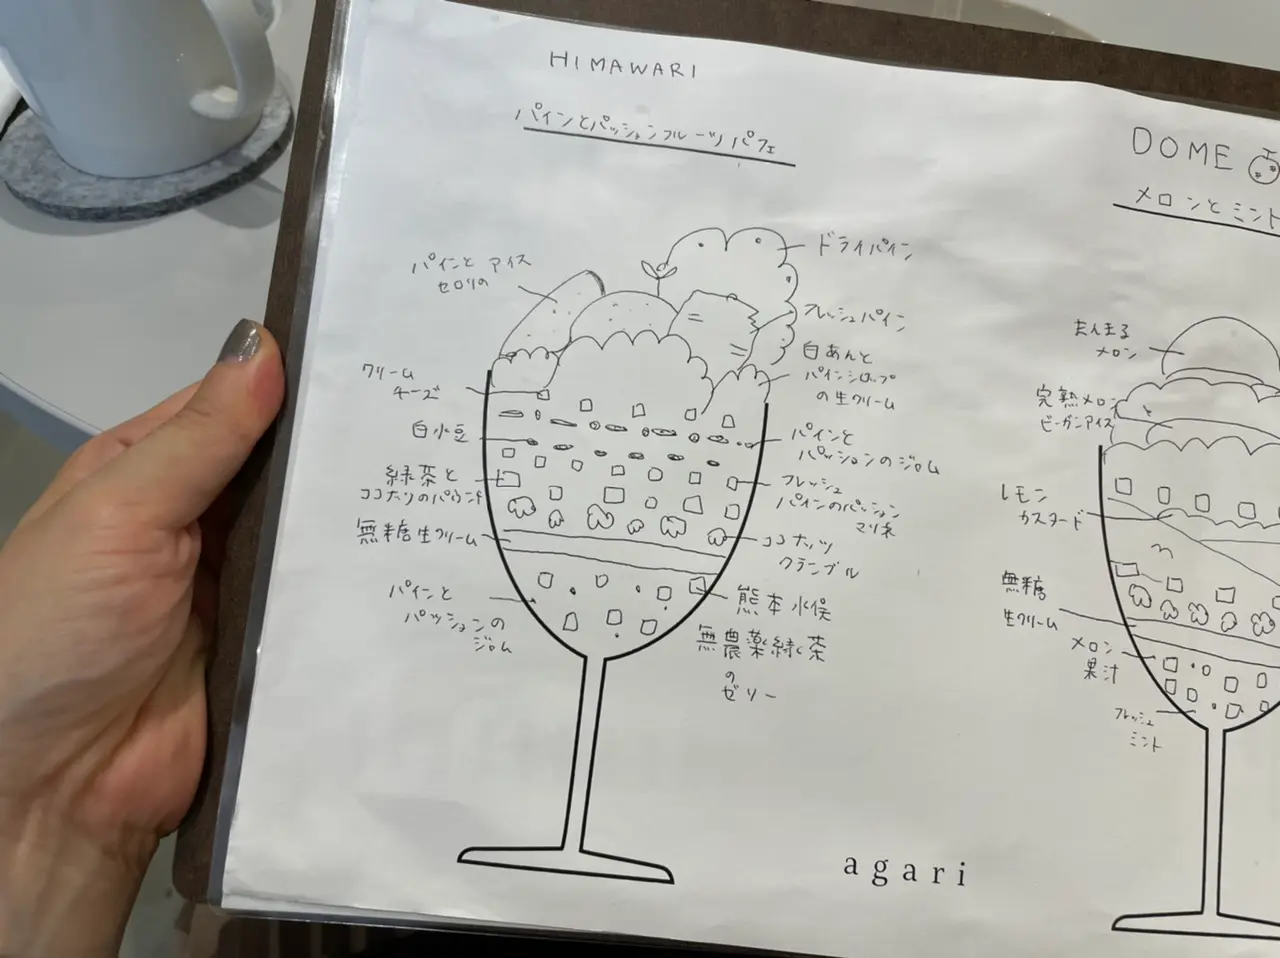 HIMAWARI
パインとパッションフルーツパフェ
パインと アイス
セロリの
クリーム
チーズ
白小豆
緑茶と
ココナツのパウンド
無糖生クリーム
パインと
パッションの
ジュレ
ドライパイン
フレッシュパイン
白あんと
パインシロップ
の生クリーム
パインと
パッションのジュレ
フレッシュ
パインのパッション
マリネ
ココナッツ
クランブル
熊本水俣
無農薬緑茶
の
ゼリー
DOME
メロンとミント
まんまる
メロン
完熟メロン
ビーガンアイス
レモン
カスタード
無糖
生クリーム
メロン
果汁
フレッシュ
ミント
agari